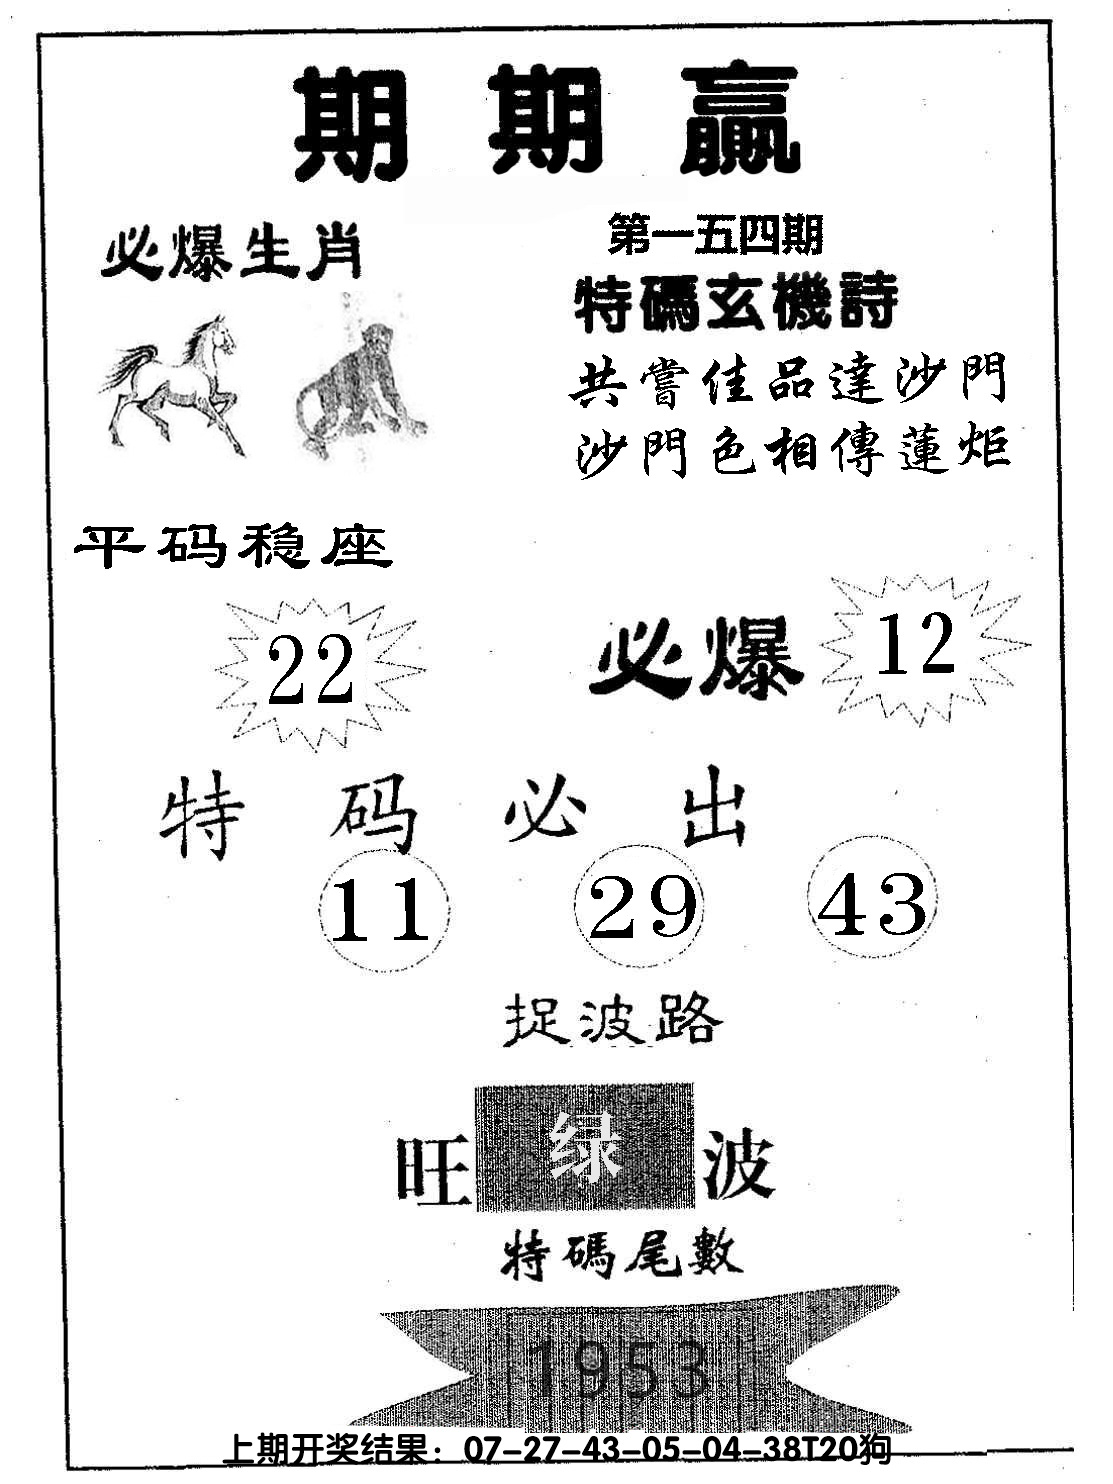 期期贏
必爆生肖
第一五四期
特碼玄機詩
共嘗佳品達沙門
沙門色相傳蓮炬
平码稳座
22
必爆
12
特码必出
11 29 43
捉波路
旺绿波
特碼尾數
1953
上期开奖结果：07-27-43-05-04-38T20狗